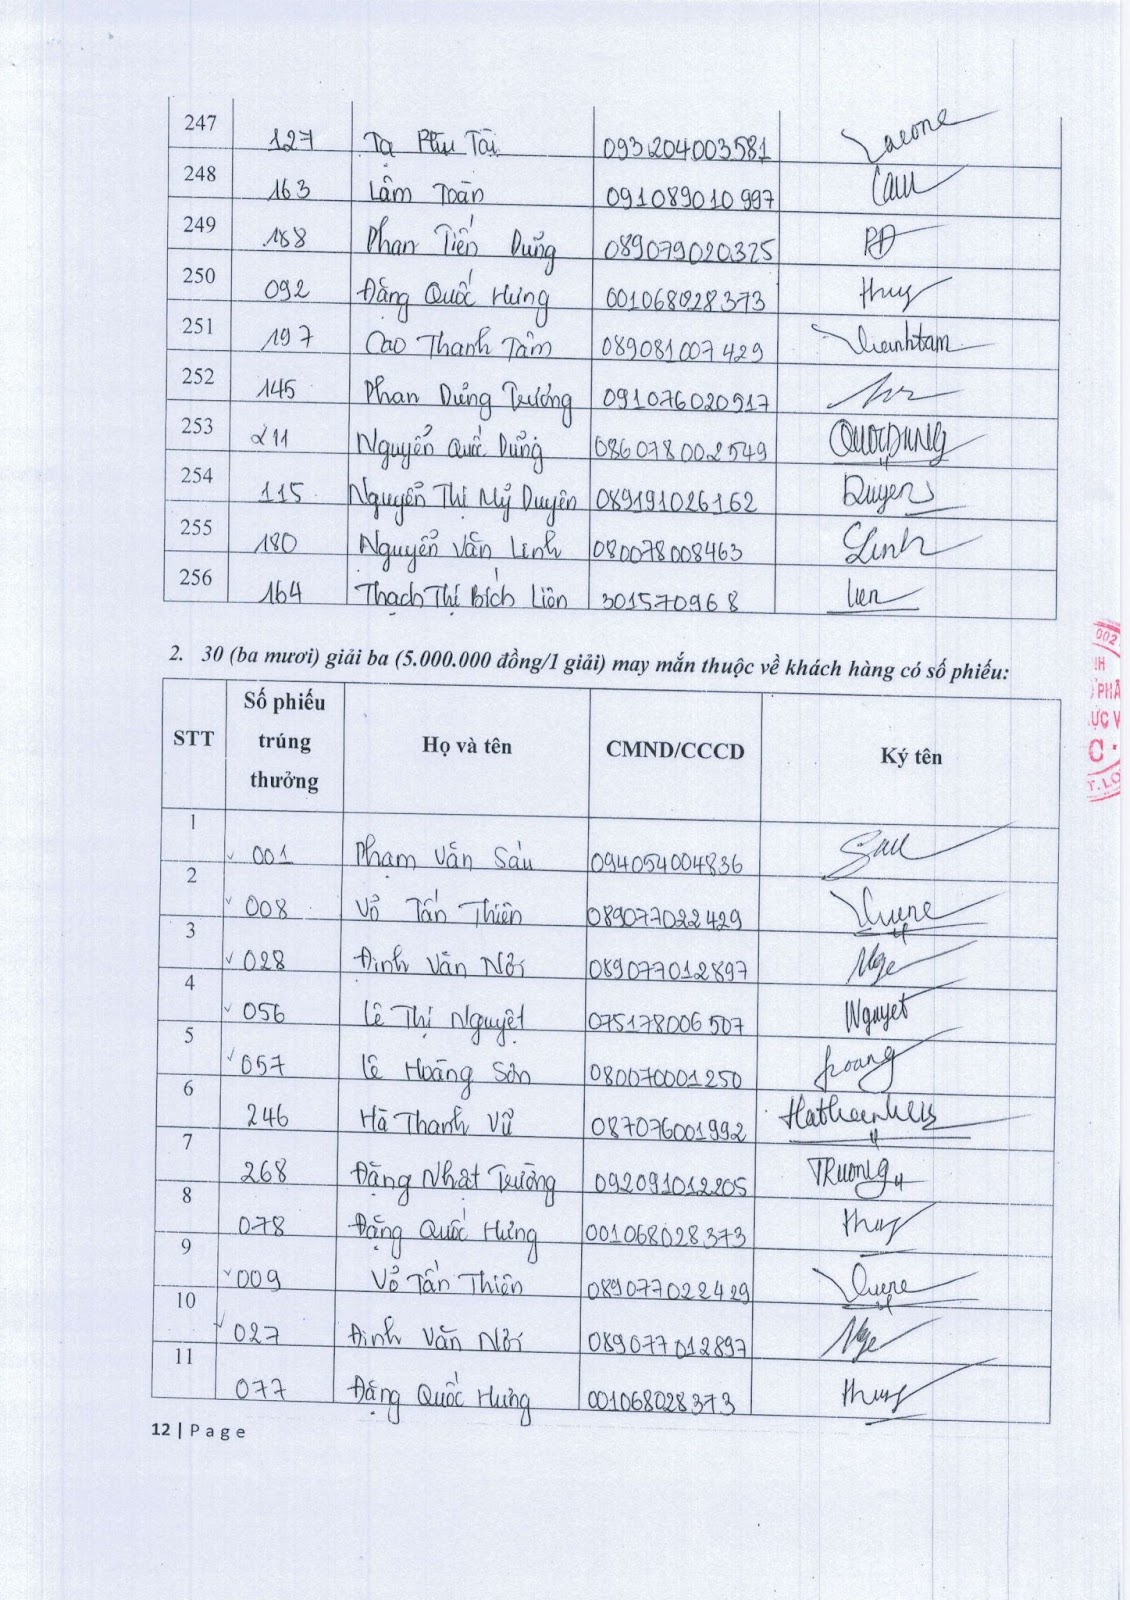 247 127 Tạ Phú Tài 093204003581
248 163 Lâm Toàn 091089010997
249 188 Phan Tiến Dũng 089079020325
250 092 Đặng Quốc Hưng 001068028373
251 197 Cao Thanh Tâm 089081007429 thanhtam
252 145 Phan Dũng Trường 091076020517
253 211 Nguyễn Quốc Dũng 086078002549 QUỐC DŨNG
254 115 Nguyễn Thị Mỹ Duyên 089191026162 Duyên
255 180 Nguyễn Văn Linh 080078008463 Linh
256 164 Thạch Thị Bích Liên 301570968 Lien
2. 30 (ba mươi) giải ba (5.000.000 đồng/1 giải) may mắn thuộc về khách hàng có số phiếu:
STT Số phiếu trúng thưởng Họ và tên CMND/CCCD Ký tên
1 001 Phạm Văn Sáu 094054004836 Sau
2 008 Võ Tấn Thiên 089077022429
3 028 Đinh Văn Nơi 089077012897
4 056 Lê Thị Nguyệt 075178006507 Nguyệt
5 057 Lê Hoàng Sơn 080070001250 hoang
6 246 Hà Thanh Vũ 087076001992
7 268 Đặng Nhật Trường 092091012205 TRuong
8 078 Đặng Quốc Hưng 001068028373
9 009 Võ Tấn Thiên 089077022429
10 027 Đinh Văn Nơi 089077012897
11 077 Đặng Quốc Hưng 001068028373
12 | Page
002